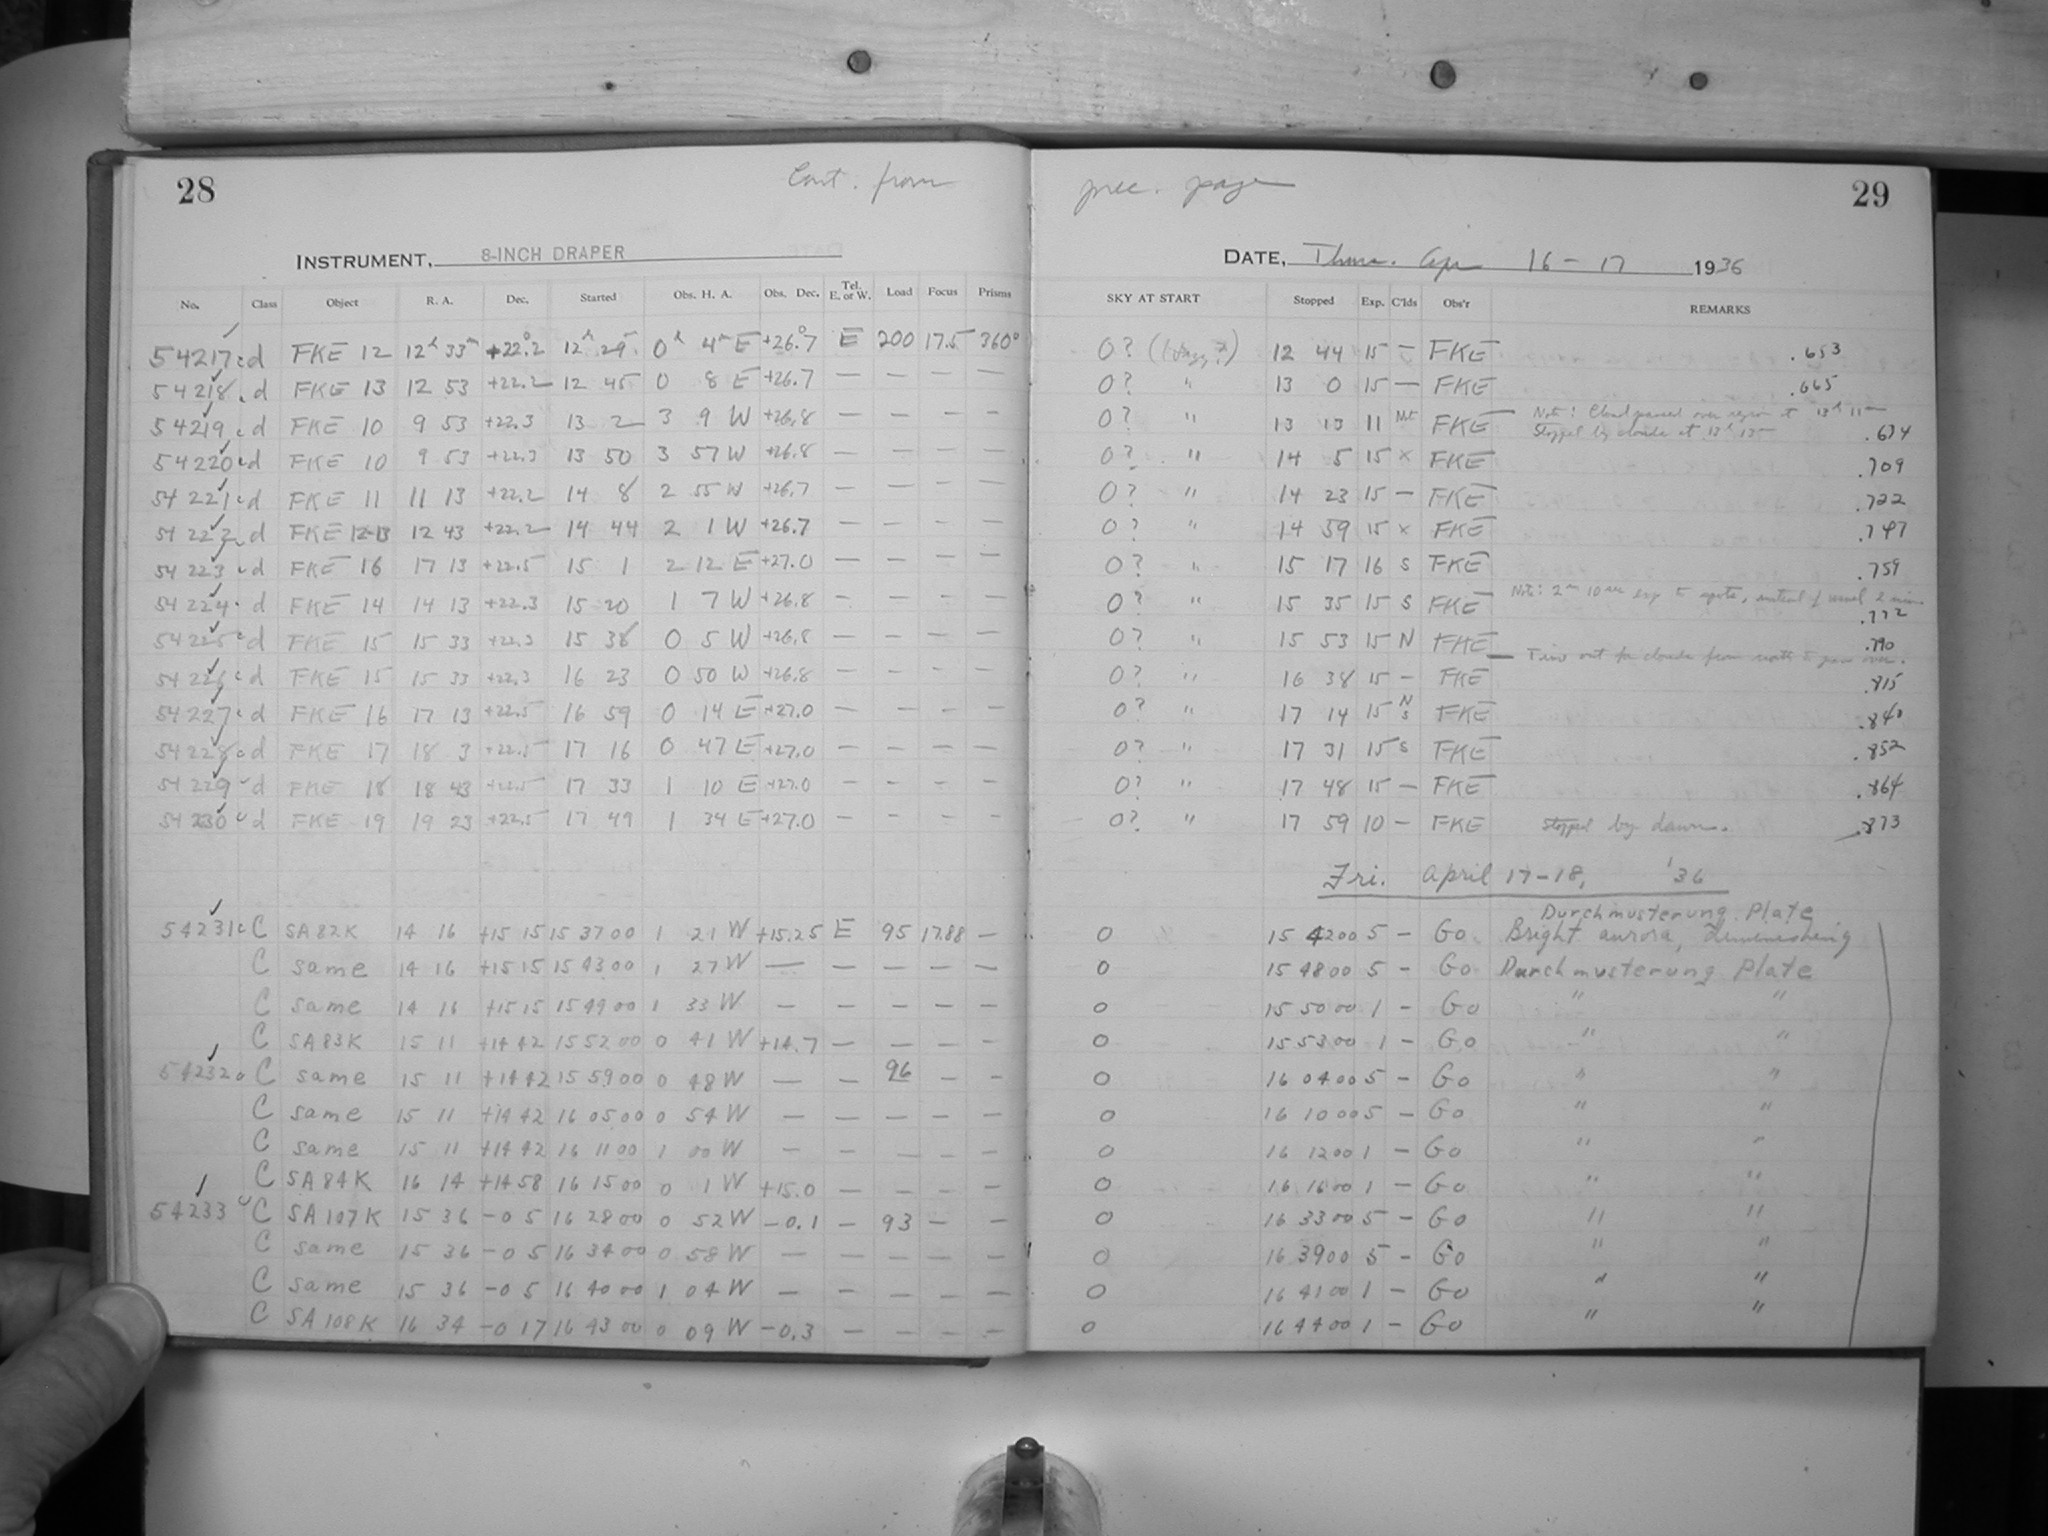 28 Cont. from prec. page 29
INSTRUMENT, 8-INCH DRAPER DATE, Thurs. Apr 16-17 1936
No. Class Object R. A. Dec. Started Obs. H. A. Obs. Dec. Tel. E. or W. Load Focus Prisms SKY AT START Stopped Exp. C'lds Obs'r REMARKS
54217 d FKE 12 12h 33m +22°.2 12h 29 0h 4m E +26°.7 E 200 17.5 360° 0? 12 44 15 — FKE .653
54218 d FKE 13 12 53 +22.2 12 45 0 8 E +26.7 — — — — 0? " 13 0 15 — FKE .665
54219 d FKE 10 9 53 +22.3 13 2 3 9 W +26.8 — — — — 0? " 13 13 11 FKE Note: Cloud passed over region at 13h 11m
Stopped by clouds at 13h 13m .674
54220 d FKE 10 9 53 +22.3 13 50 3 57 W +26.8 — — — — 0? " 14 5 15 x FKE .709
54221 d FKE 11 11 13 +22.2 14 8 2 55 W +26.7 — — — — 0? " 14 23 15 — FKE .722
54222 d FKE 12-13 12 43 +22.2 14 44 2 1 W +26.7 — — — — 0? " 14 59 15 x FKE .747
54223 d FKE 16 17 13 +22.5 15 1 2 12 E +27.0 — — — — 0? " 15 17 16 S FKE .759
54224 d FKE 14 14 13 +22.3 15 20 1 7 W +26.8 — — — — 0? " 15 35 15 S FKE Note: 2m 10 sec exp to spots, instead of usual 2 min. .772
54225 d FKE 15 15 33 +22.3 15 38 0 5 W +26.8 — — — — 0? " 15 53 15 N FKE .790
— Time out for clouds from north to pass over.
54226 d FKE 15 15 33 +22.3 16 23 0 50 W +26.8 — — — — 0? " 16 38 15 — FKE .815
54227 d FKE 16 17 13 +22.5 16 59 0 14 E +27.0 — — — — 0? " 17 14 15 N S FKE .840
54228 d FKE 17 18 3 +22.5 17 16 0 47 E +27.0 — — — — 0? " 17 31 15 S FKE .852
54229 d FKE 18 18 43 +22.5 17 33 1 10 E +27.0 — — — — 0? " 17 48 15 — FKE .864
54230 d FKE 19 19 23 +22.5 17 49 1 34 E +27.0 — — — — 0? " 17 59 10 — FKE Stopped by dawn. .873
Fri. April 17-18, '36
Durchmusterung Plate
54231 C SA82K 14 16 +15 15 15 37 00 1 21 W +15.25 E 95 17.88 — 0 15 42 00 5 — Go Bright aurora,
C same 14 16 +15 15 15 43 00 1 27 W — — — — — 0 15 48 00 5 — Go Durchmusterung Plate
C same 14 16 +15 15 15 49 00 1 33 W — — — — — 0 15 50 00 1 — Go " "
C SA83K 15 11 +14 42 15 52 00 0 41 W +14.7 — — — — 0 15 53 00 1 — Go " "
54232 C same 15 11 +14 42 15 59 00 0 48 W — — 96 — — 0 16 04 00 5 — Go " "
C same 15 11 +14 42 16 05 00 0 54 W — — — — — 0 16 10 00 5 — Go " "
C same 15 11 +14 42 16 11 00 1 00 W — — — — — 0 16 12 00 1 — Go " "
C SA84K 16 14 +14 58 16 15 00 0 1 W +15.0 — — — — 0 16 16 00 1 — Go " "
54233 C SA107K 15 36 -0 5 16 28 00 0 52 W -0.1 — 93 — — 0 16 33 00 5 — Go " "
C same 15 36 -0 5 16 34 00 0 58 W — — — — — 0 16 39 00 5 — Go " "
C same 15 36 -0 5 16 40 00 1 04 W — — — — — 0 16 41 00 1 — Go " "
C SA108K 16 34 -0 17 16 43 00 0 09 W -0.3 — — — — 0 16 44 00 1 — Go " "